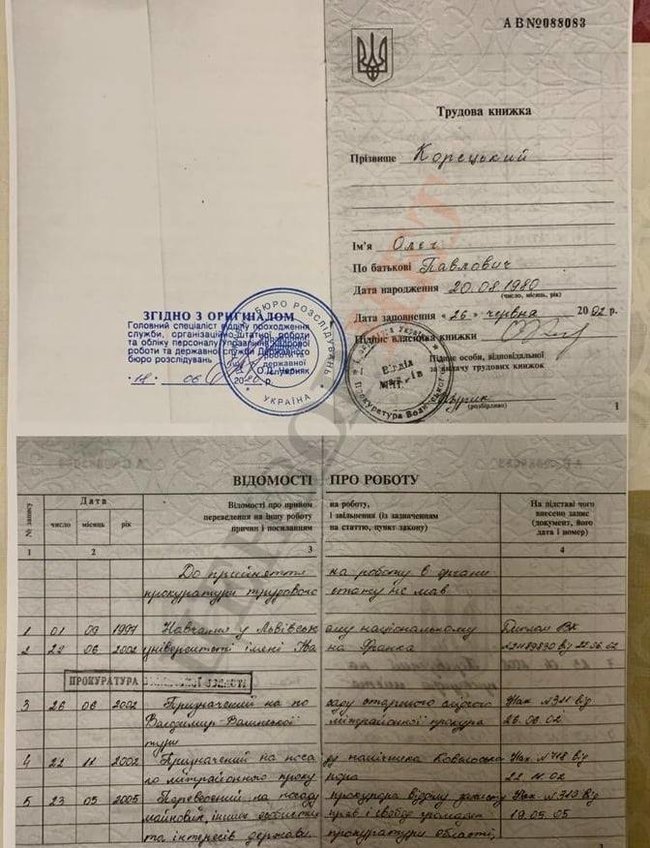 АВ№088083
Трудова книжка
Прізвище Корецький
Ім'я Олег
По батькові Павлович
Дата народження 20.08.1980
(число, місяць, рік)
Дата заповнення «26» червня 2002 р.
Підпис власника книжки
Підпис особи, відповідальної
за видачу трудових книжок
(розбірливо)
1
ЗГІДНО З ОРИГІНАЛОМ
Головний спеціаліст відділу проходження
служби, організаційно-штатної роботи
та обліку персоналу Управління кадрової
роботи та державної служби Державного
бюро розслідувань
БЮРО РОЗСЛІДУВАНЬ
УКРАЇНА
ВІДОМОСТІ ПРО РОБОТУ
№ запису
Дата
число місяць рік
Відомості про прийом на роботу,
переведення на іншу роботу і звільнення (із зазначенням
причин і посиланням на статтю, пункт закону)
На підставі чого
внесено запис
(документ, його
дата і номер)
1 2 3 4
До прийняття на роботу в органи
прокуратури трудового стажу не мав
1 01 09 1997 Навчання у Львівському національному Диплом ВК
2 22 06 2002 університеті імені Івана Франка
ПРОКУРАТУРА
3 26 06 2002 Призначений на посаду старшого слідчого Нак. №311 від
Володимир-Волинської міжрайонної прокура 26.06.02
тури
4 22 11 2002 Призначений на посаду помічника Ковельсько Нак. №718 від
го міжрайонного прокурора 22.11.02
5 23 05 2005 Переведений на посаду прокурора відділу захисту Нак. №313 від
майнових, інших особистих прав і свобод громадян 19.05.05
та інтересів держави прокуратури області,